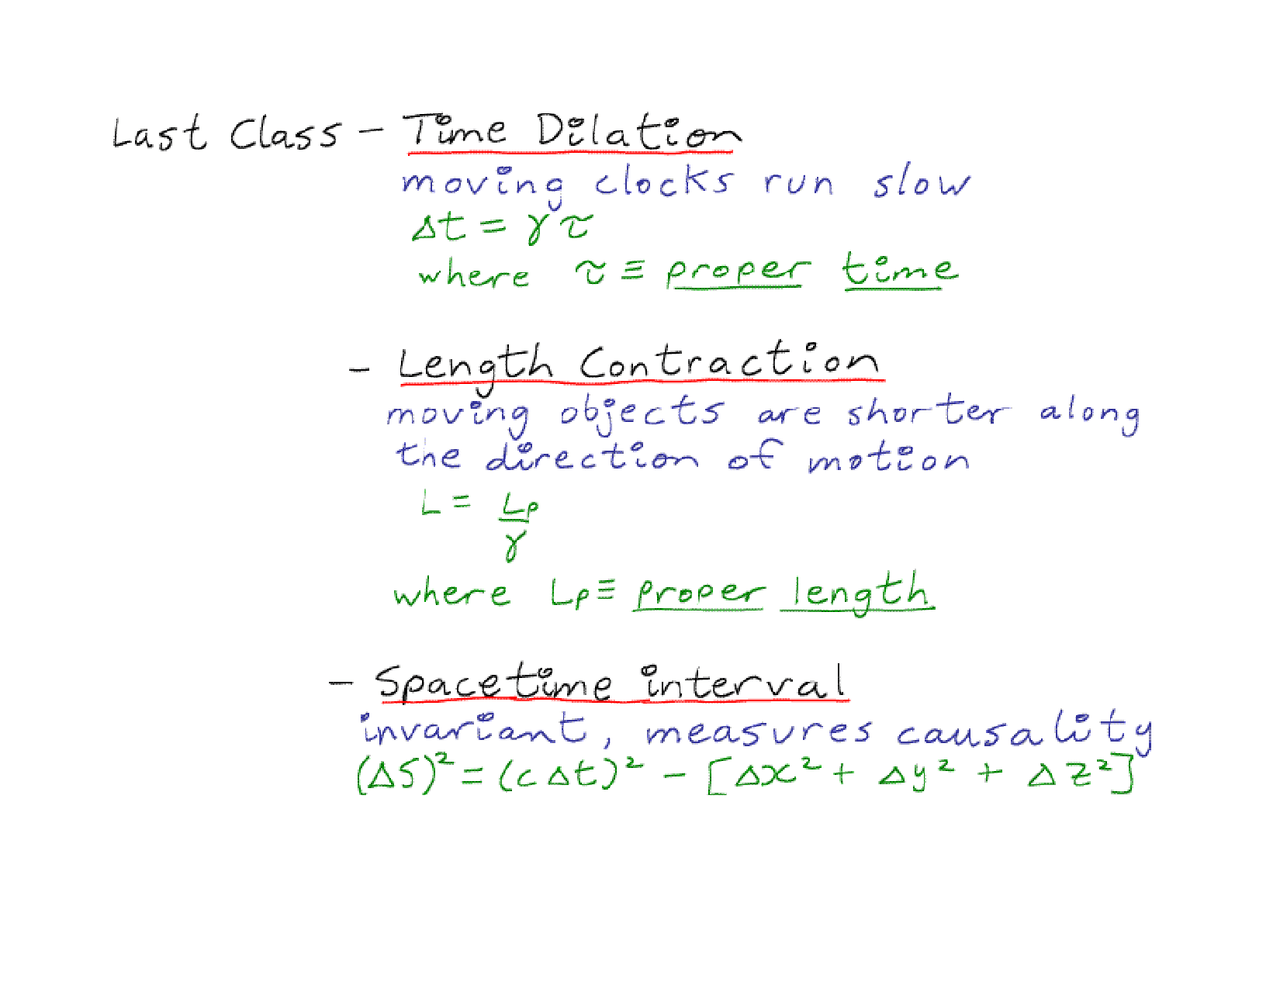 Last Class - Time Dilation
moving clocks run slow
Δt = γτ
where τ ≡ proper time
- Length Contraction
moving objects are shorter along
the direction of motion
L = Lp/γ
where Lp ≡ proper length
- Spacetime interval
invariant, measures causality
(ΔS)² = (cΔt)² - [Δx² + Δy² + Δz²]